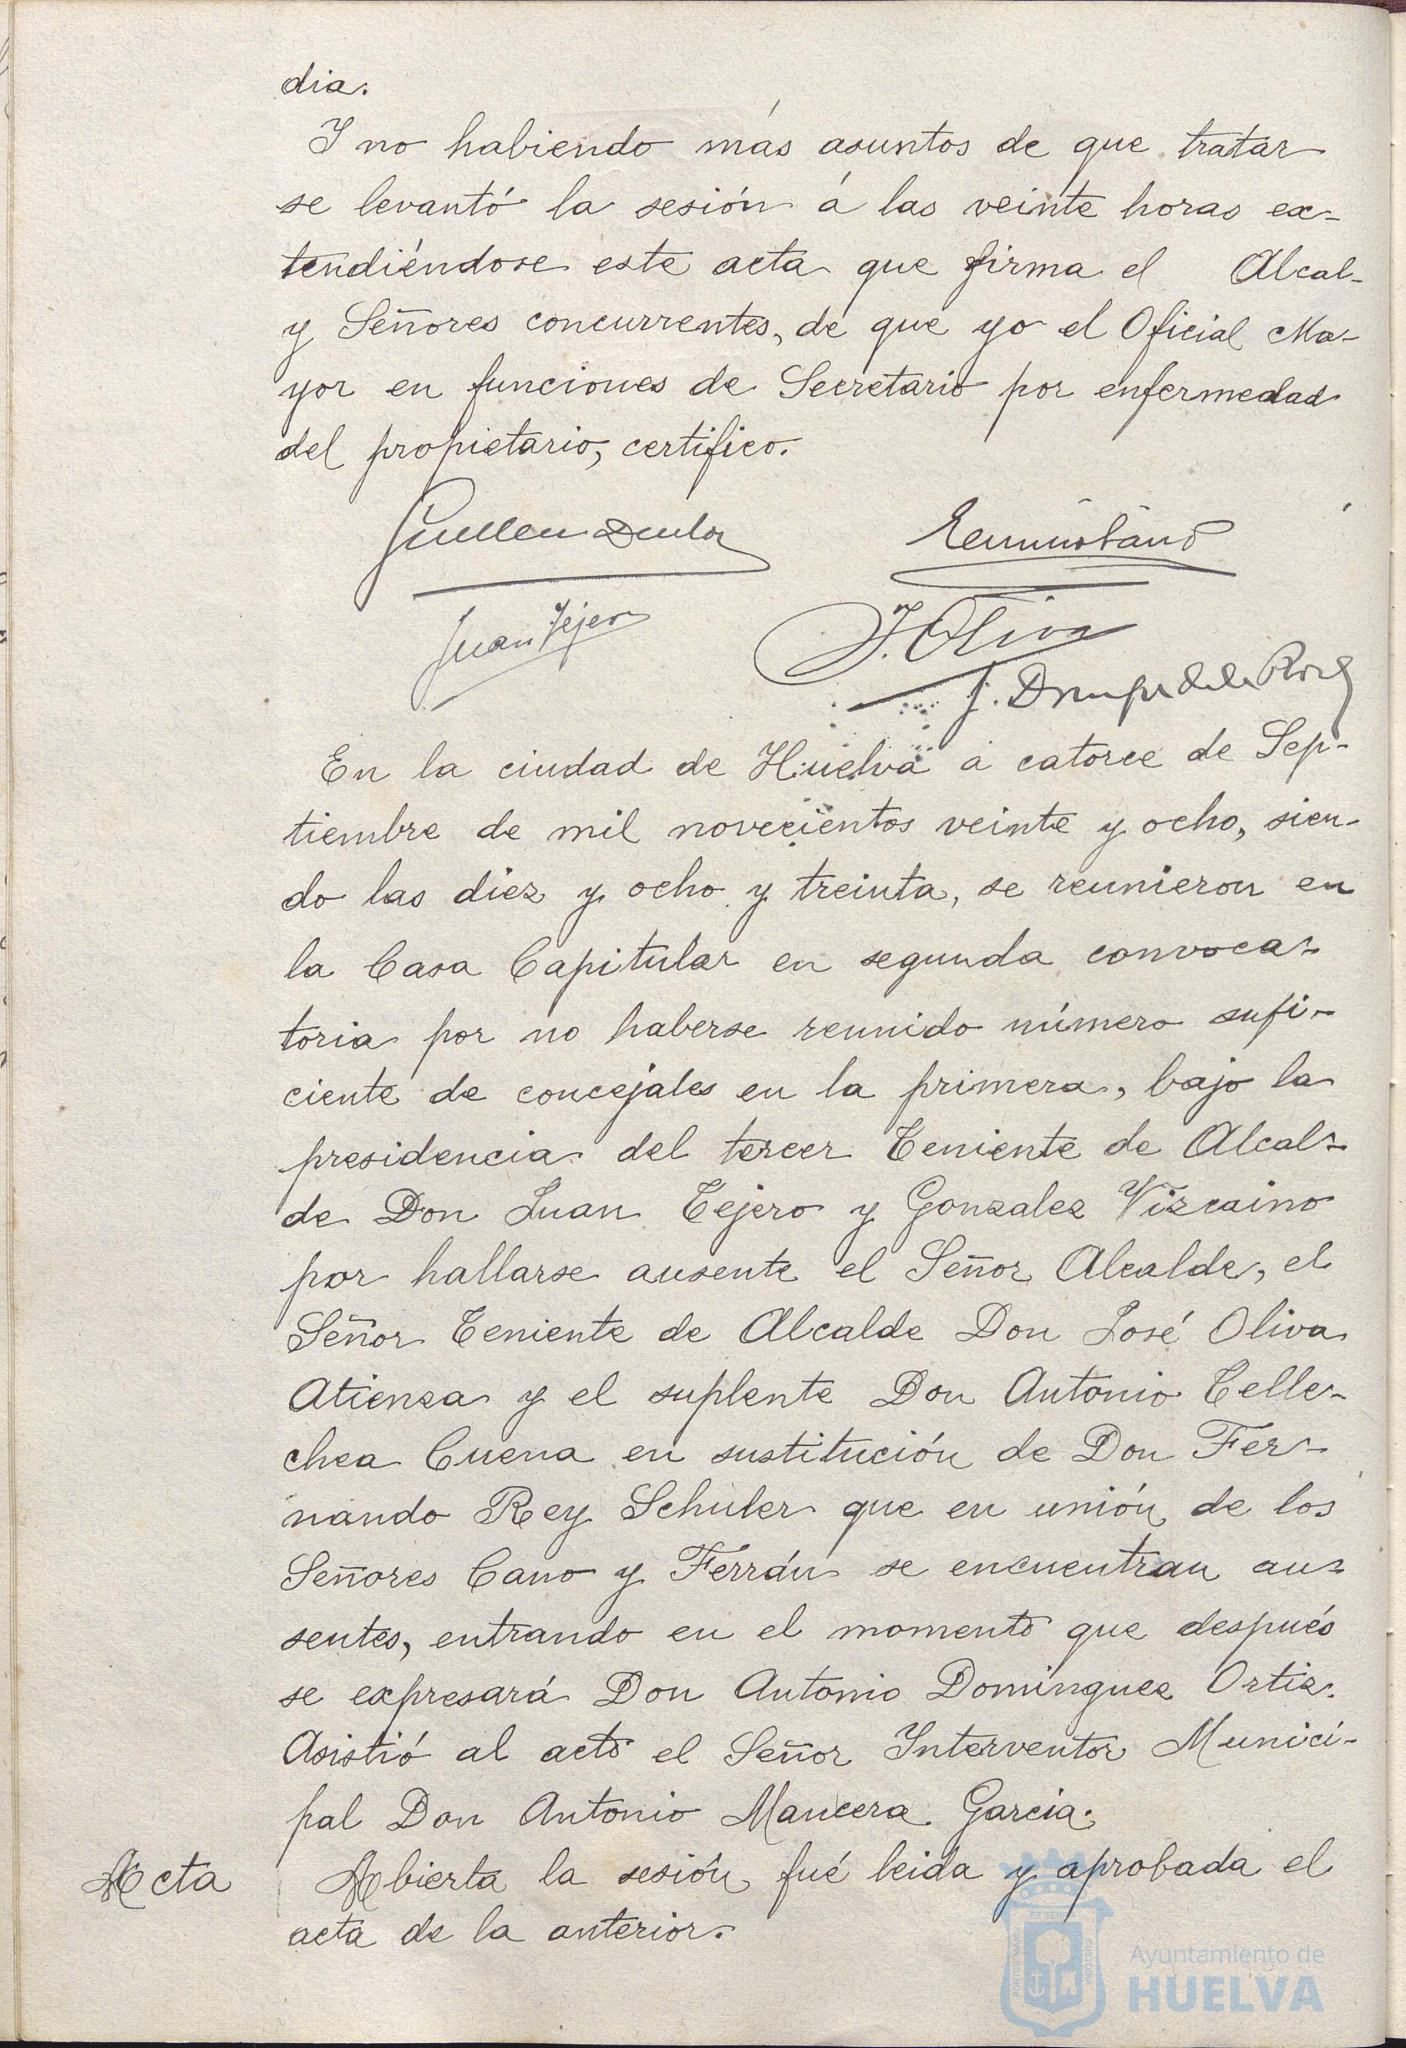 dia.
Y no habiendo más asuntos de que tratar
se levantó la sesión á las veinte horas ex-
tendiéndose este acta que firma el Alcal-
y Señores concurrentes, de que yo el Oficial Ma-
yor en funciones de Secretario por enfermedad
del propietario, certifico.
Juan Tejero
J. Oliva
En la ciudad de Huelva a catorce de Sep-
tiembre de mil novecientos veinte y ocho, sien-
do las diez y ocho y treinta, se reunieron en
la Casa Capitular en segunda convoca-
toria por no haberse reunido número sufi-
ciente de concejales en la primera, bajo la
presidencia del tercer Teniente de Alcal-
de Don Juan Tejero y Gonzalez Vizcaino
por hallarse ausente el Señor Alcalde, el
Señor Teniente de Alcalde Don José Oliva
Atienza y el suplente Don Antonio Telle-
chea Cuena en sustitución de Don Fer-
nando Rey Schuler que en unión de los
Señores Cano y Ferrán se encuentran au-
sentes, entrando en el momento que después
se expresará Don Antonio Dominguez Ortiz.
Asistió al acto el Señor Interventor Munici-
pal Don Antonio Mancera Garcia.
Acta Abierta la sesión fué leida y aprobada el
acta de la anterior.
Ayuntamiento de
HUELVA